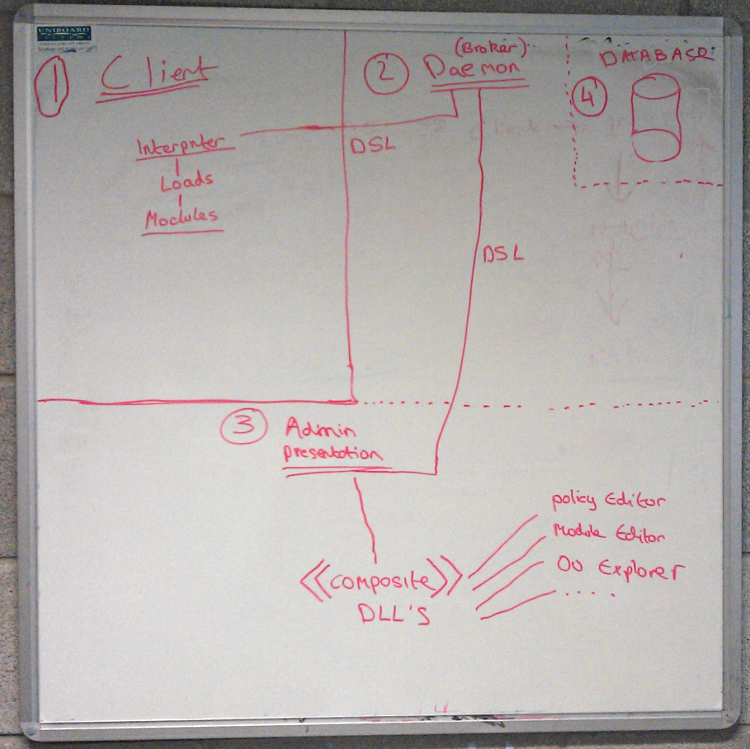 UNIBOARD
① Client
Interpreter
Loads
Modules
② (Broker)
Daemon
DSL
DSL
④ DATABASE
③ Admin
presentation
<<composite>>
DLL'S
policy Editor
Module Editor
OU Explorer
.....